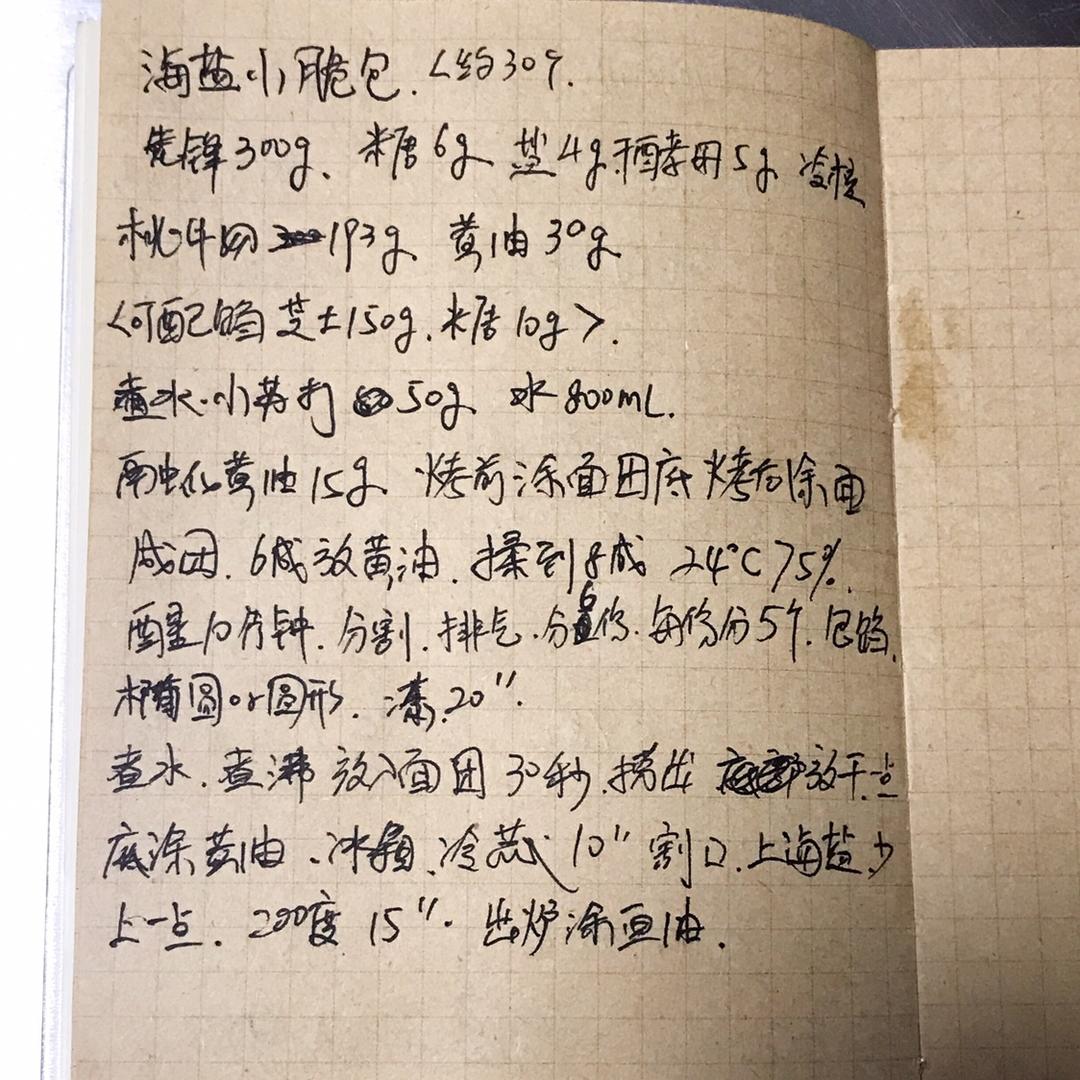 海盐小脆包. <约30个.
先锋300g、糖6g 盐4g.干酵母5g 冷核
桃牛奶193g 黄油30g
<可配馅 芝士150g.糖10g>.
煮水.小苏打50g 水800mL.
融化黄油15g 烤前涂面团底 烤后涂面
成团.6成放黄油.揉到8成 24℃ 75%.
醒10分钟.分割.排气.分6份.每份分5个.包馅.
椭圆or圆形. 冻.20".
煮水.煮沸 放入面团30秒.捞出 放干.一点
底涂黄油.冰箱.冷藏10"割口.上海盐.少
上一点. 200度 15". 出炉涂黄油.